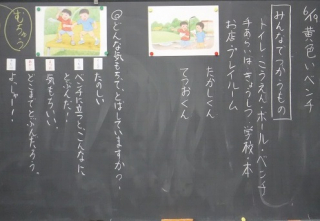 6/19 黄色いベンチ
みんなでつかうもの
トイレ・こうえん・ホール・ベンチ
手あらいば・きょうしつ・学校・本
お店・プレイルーム
たかしくん
てつおくん
どんな気もちで、とばしていますかな？
たのしい
ベンチに立つとこんなに
とぶんだ！
気もちいい。
どこまでとぶんだろう。
よしゃー！！
むちゅう